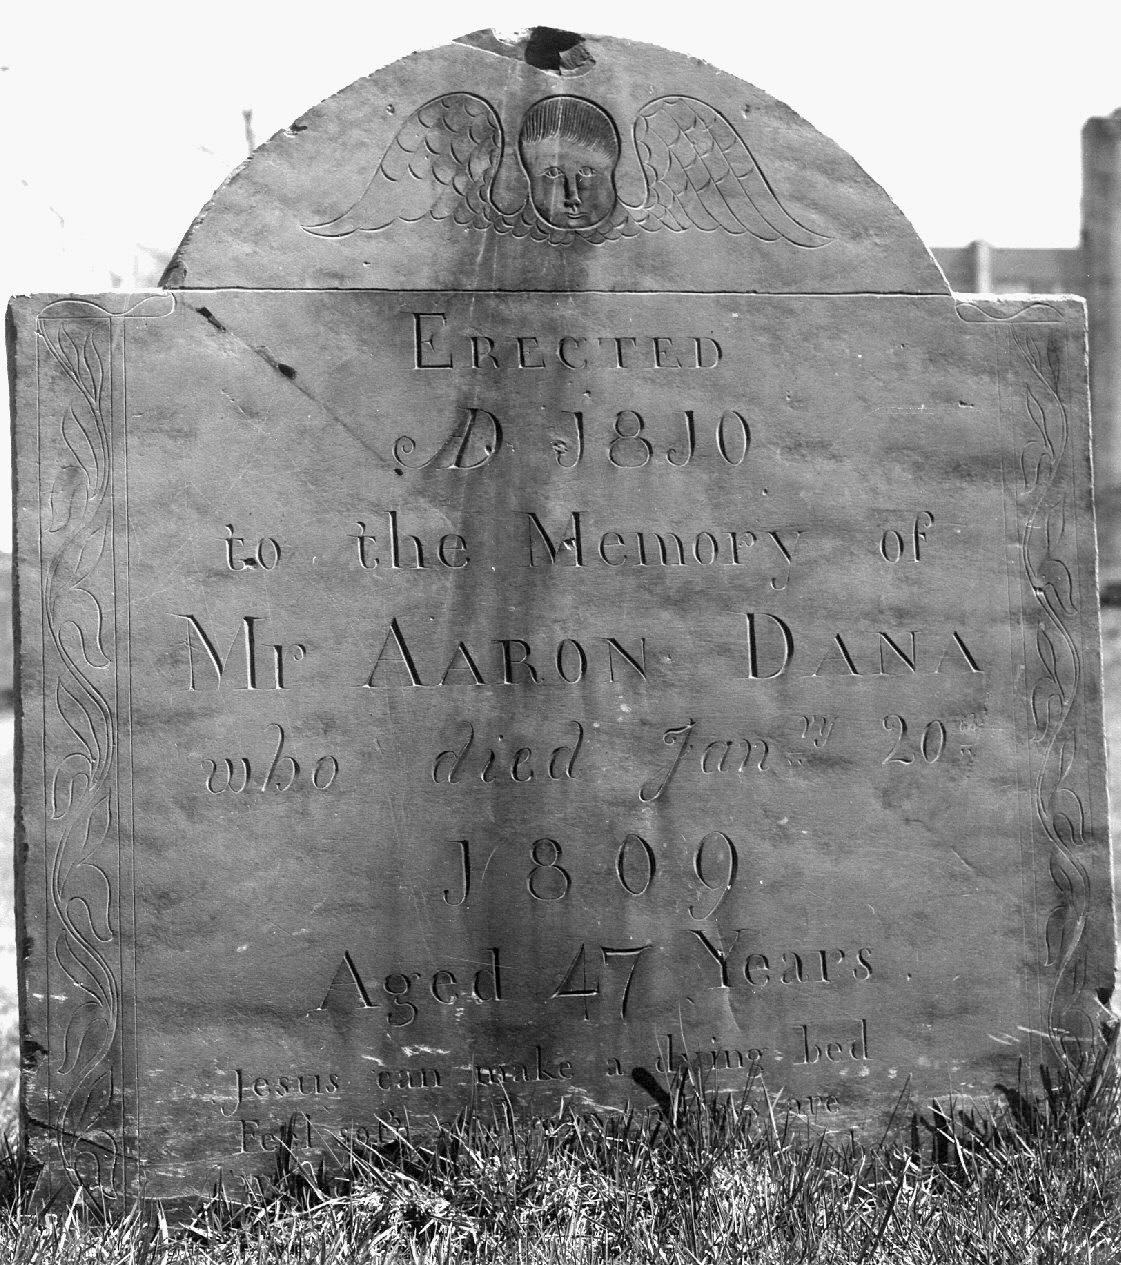 ERECTED
AD. 1810
to the Memory of
Mr AARON DANA
who died Janry 20
1809
Aged 47 Years.
Jesus can make a dying bed
Feel soft as are